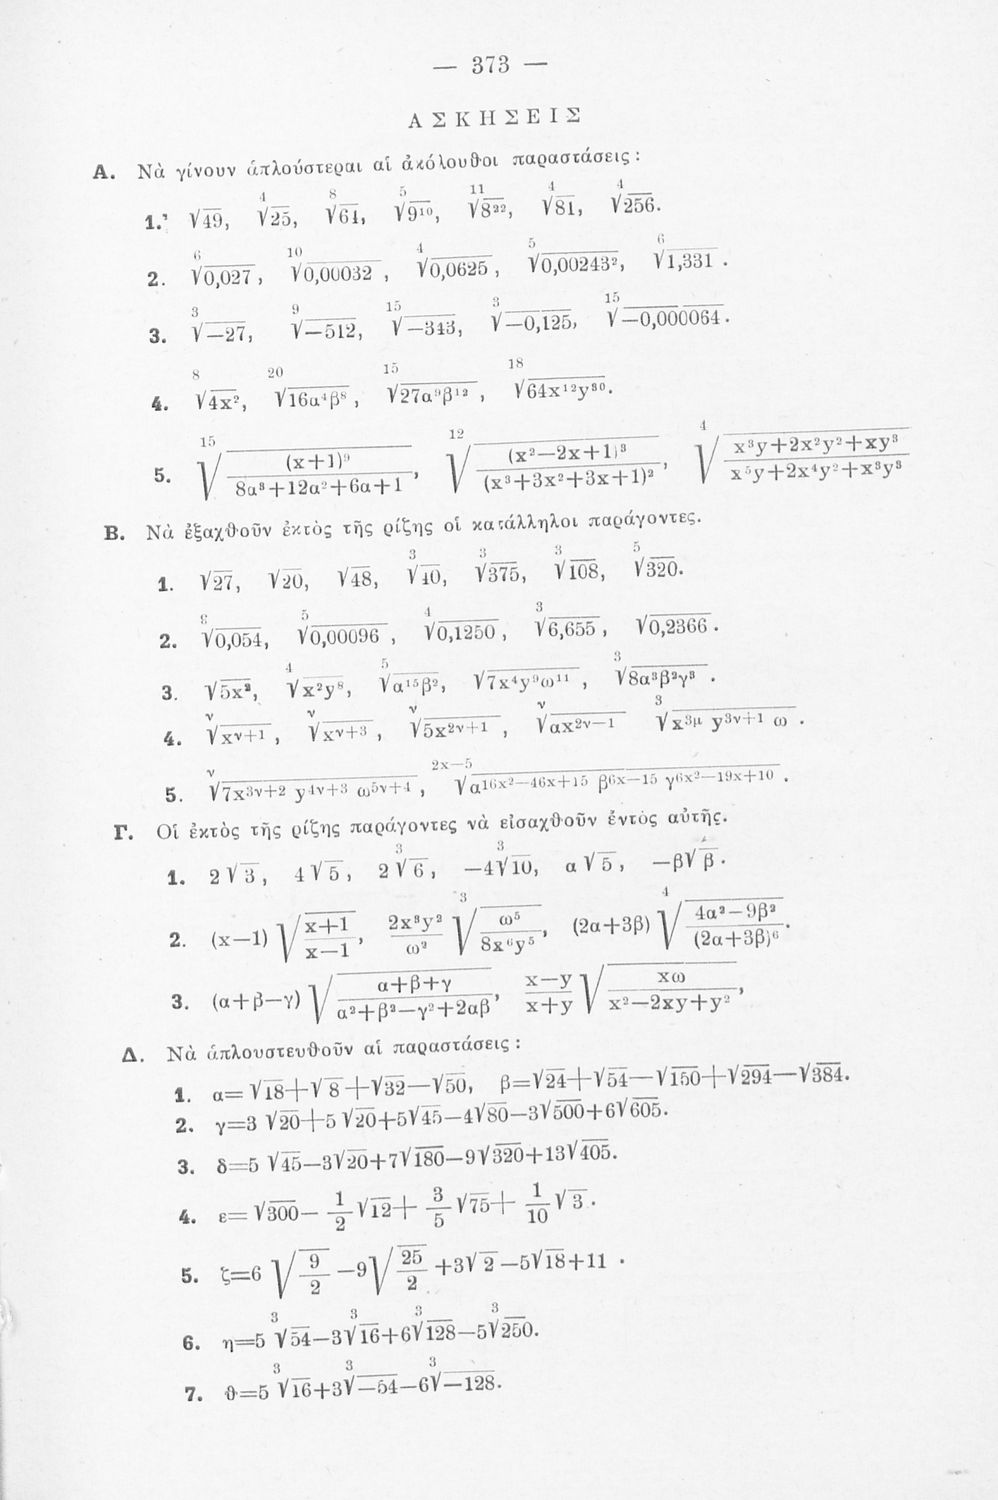 — 373 —
ΑΣΚΗΣΕΙΣ
Α. Νὰ γίνουν ἁπλούστεραι αἱ ἀκόλουθοι παραστάσεις :
1. √49, ⁴√25, ⁸√64, ⁵√9¹⁰, ¹¹√8²², ⁴√81, ⁴√256.
2. ⁶√0,027 , ¹⁰√0,00032 , ⁴√0,0625 , ⁵√0,00243², ⁶√1,331 .
3. ³√—27, ⁹√—512, ¹⁵√—343, ³√—0,125, ¹⁵√—0,000064.
4. ⁸√4x², ²⁰√16α⁴β⁸ , ¹⁵√27α⁹β¹² , ¹⁸√64x¹²y³⁰.
5. ¹⁵√((x+1)⁹ / (8α³+12α²+6α+1)) , ¹²√((x²—2x+1)³ / (x³+3x²+3x+1)²) , ⁴√((x³y+2x²y²+xy³) / (x⁵y+2x⁴y²+x³y³))
Β. Νὰ ἐξαχθοῦν ἐκτὸς τῆς ρίζης οἱ κατάλληλοι παράγοντες.
1. √27, √20, √48, ³√40, ³√375, ³√108, ⁵√320.
2. ³√0,054, ⁵√0,00096 , ⁴√0,1250 , ³√6,655 , √0,2366 .
3. √5x², ⁴√x²y⁸, ⁵√α¹⁵β², √7x⁴y⁹ω¹¹ , ³√8α³β²γ³ .
4. ᵛ√x^(ν+1) , ᵛ√x^(ν+3) , ᵛ√5x^(2ν+1) , ᵛ√αx^(2ν—1) ³√x^(3μ) y^(3ν+1) ω .
5. ᵛ√7x^(3ν+2) y^(4ν+3) ω^(5ν+4) , ^(2x—5)√α^(16x²—46x+15) β^(6x—15) γ^(6x²—19x+10) .
Γ. Οἱ ἐκτὸς τῆς ρίζης παράγοντες νὰ εἰσαχθοῦν ἐντὸς αὐτῆς.
1. 2√3 , 4√5 , 2³√6 , —4³√10, α√5 , —β√β .
2. (x—1) √((x+1) / (x—1)) , (2x³y² / ω²) ³√(ω⁵ / 8x⁶y⁵) , (2α+3β) ⁴√((4α²—9β²) / (2α+3β)⁶) .
3. (α+β—γ) √((α+β+γ) / (α²+β²—γ²+2αβ)) , ((x—y) / (x+y)) √(xω / (x²—2xy+y²)) ,
Δ. Νὰ ἁπλουστευθοῦν αἱ παραστάσεις :
1. α=√18+√8+√32—√50, β=√24+√54—√150+√294—√384.
2. γ=3 √20+5 √20+5√45—4√80—3√500+6√605.
3. δ=5 √45—3√20+7√180—9√320+13√405.
4. ε=√300— (1/2) √12+ (3/5) √75+ (1/10) √3 .
5. ζ=6 √(9/2) —9√(25/2) +3√2 —5√18+11 .
6. η=5 ³√54—3³√16+6³√128—5³√250.
7. θ=5 ³√16+3³√—54—6³√—128.